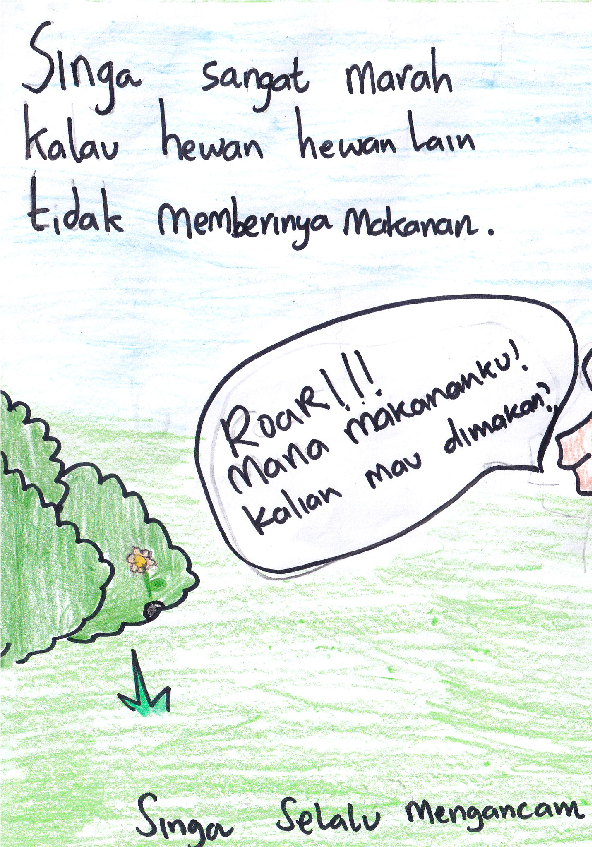 Singa sangat marah
kalau hewan hewan lain
tidak memberinya makanan.
ROAR!!!
Mana makananku!
kalian mau dimakan?
Singa selalu mengancam